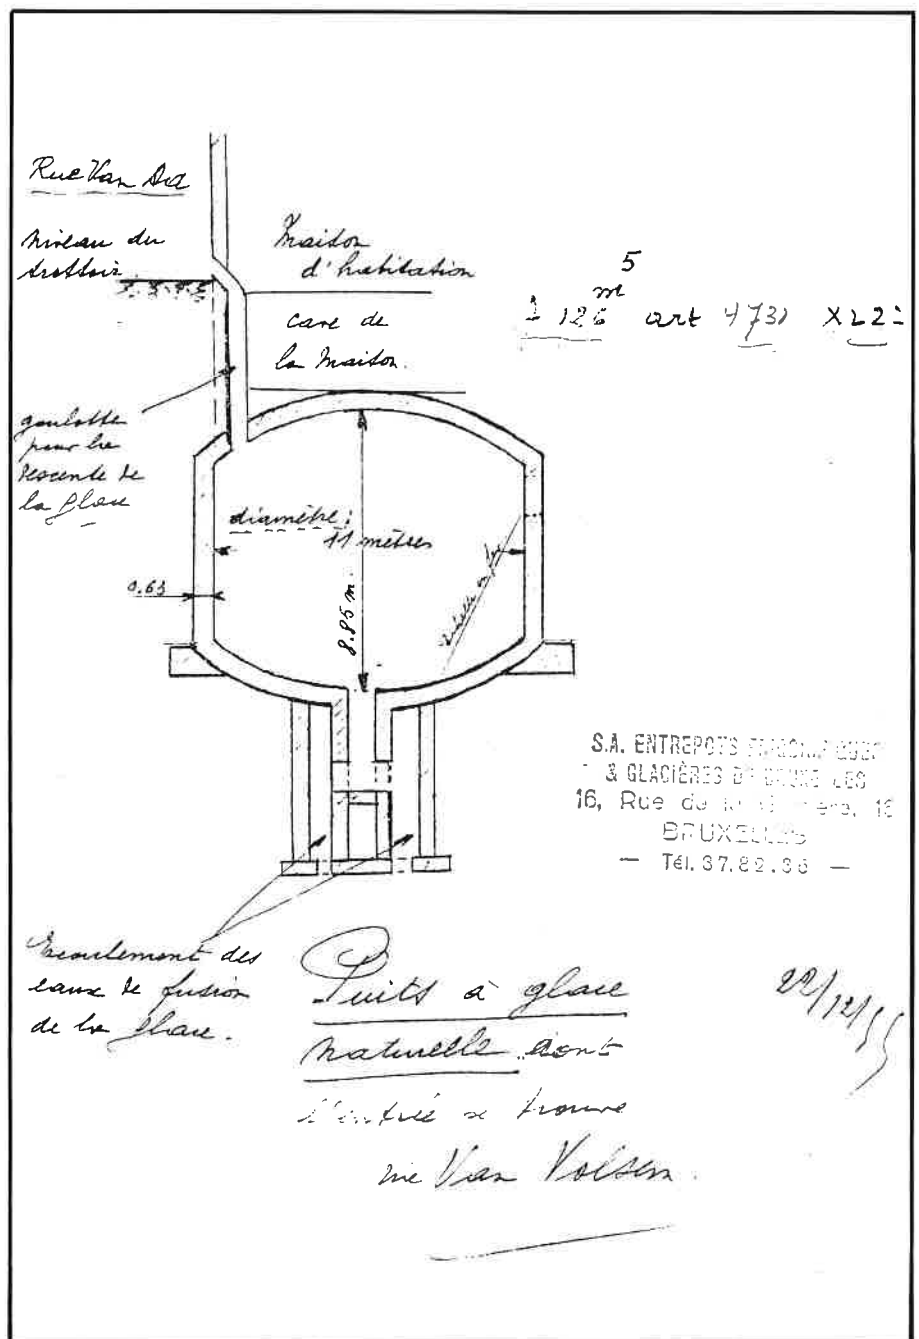 Rue Van Aa
niveau du
trottoir
Maison
d'habitation
cave de
la Maison.
5
m
126 art 4731 X 22
goulotte
pour la
descente de
la glace
diamètre:
11 mètres
0.63
8.85 m.
échelle en fer
S.A. ENTREPOTS FRIGORIFIQUES
& GLACIÈRES DE BRUXELLES
16, Rue de la 16
BRUXELLES
— Tél. 37.82.36 —
Ecoulement des
eaux de fusion
de la glace.
Puits à glace
naturelle dont
l'entrée se trouve
rue Van Volsem.
22/12/55